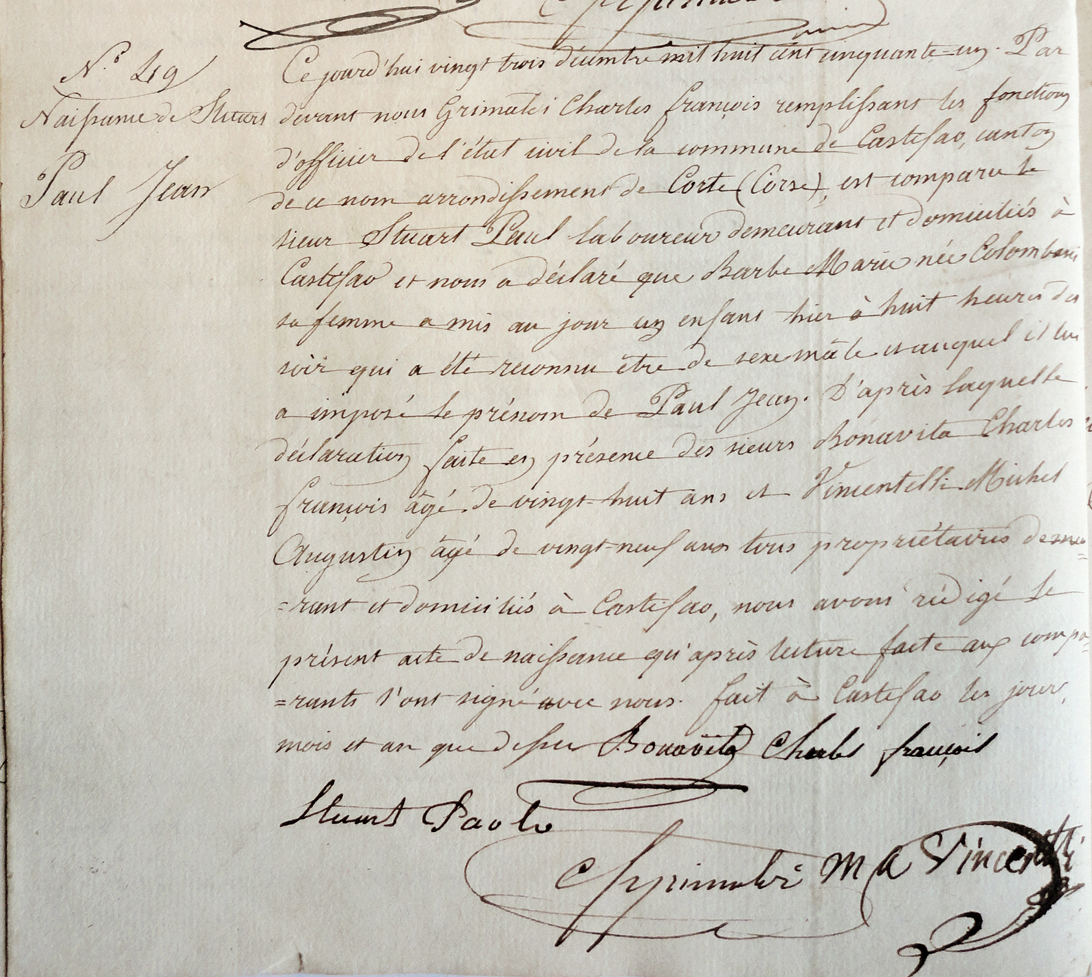 N.° 49
Naissance de Stuart
Paul Jean
Ce jourd'hui vingt trois décembre mil huit cent cinquante=un. Par
devant nous Grimaldi Charles françois remplissant les fonctions
d'officier de l'état civil de la commune de Castifao, canton
de ce nom arrondissement de Corte (Corse) est comparu le
sieur Stuart Paul laboureur demeurant et domiciliés à
Castifao et nous a déclaré que Barbe Marie née Colombani
sa femme a mis au jour un enfant hier à huit heures du
soir qui a été reconnu être de sexe mâle et auquel il lui
a imposé le prénom de Paul Jean. D'après laquelle
déclaration faite en présence des sieurs Bonavita Charles
françois âgé de vingt-huit ans et Vincentelli Michel
Augustin âgé de vingt-neuf ans tous propriétaires demeu
=rant et domiciliés à Castifao, nous avons rédigé le
présent acte de naissance qu'après lecture faite aux compa-
=rants l'ont signé avec nous. fait à Castifao les jour,
mois et an que dessus Bonavita Charles françois
Stuart Paolo
Grimaldi M A Vincentelli